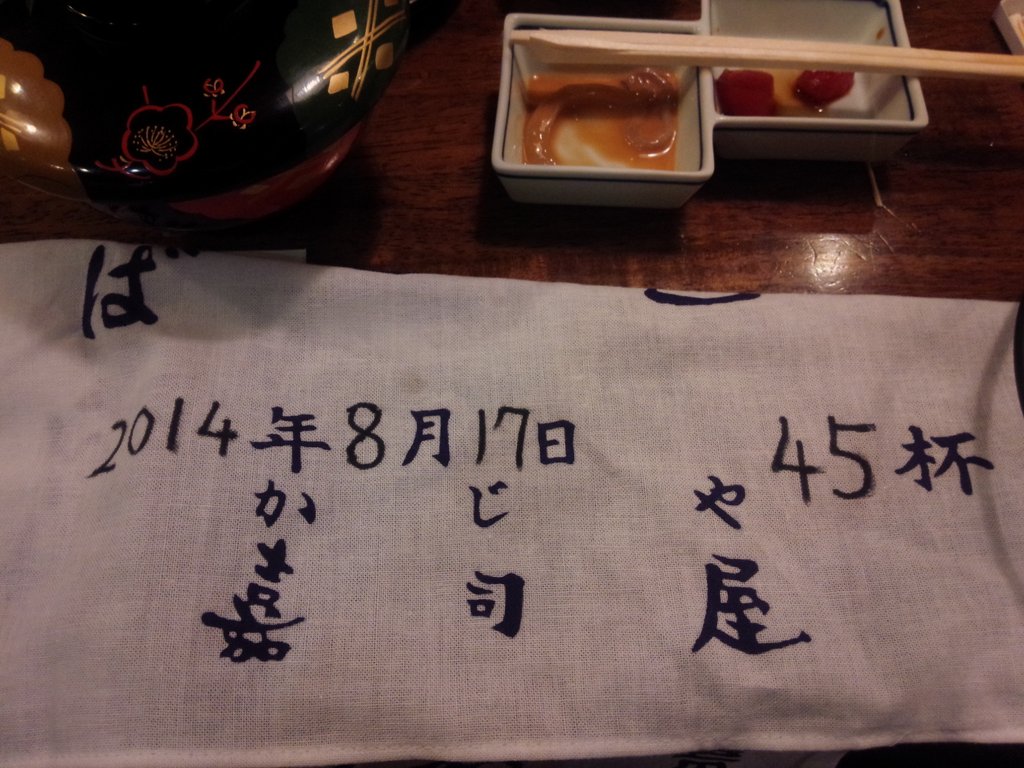 ば
2014年8月17日 45杯
か じ や
嘉 司 屋